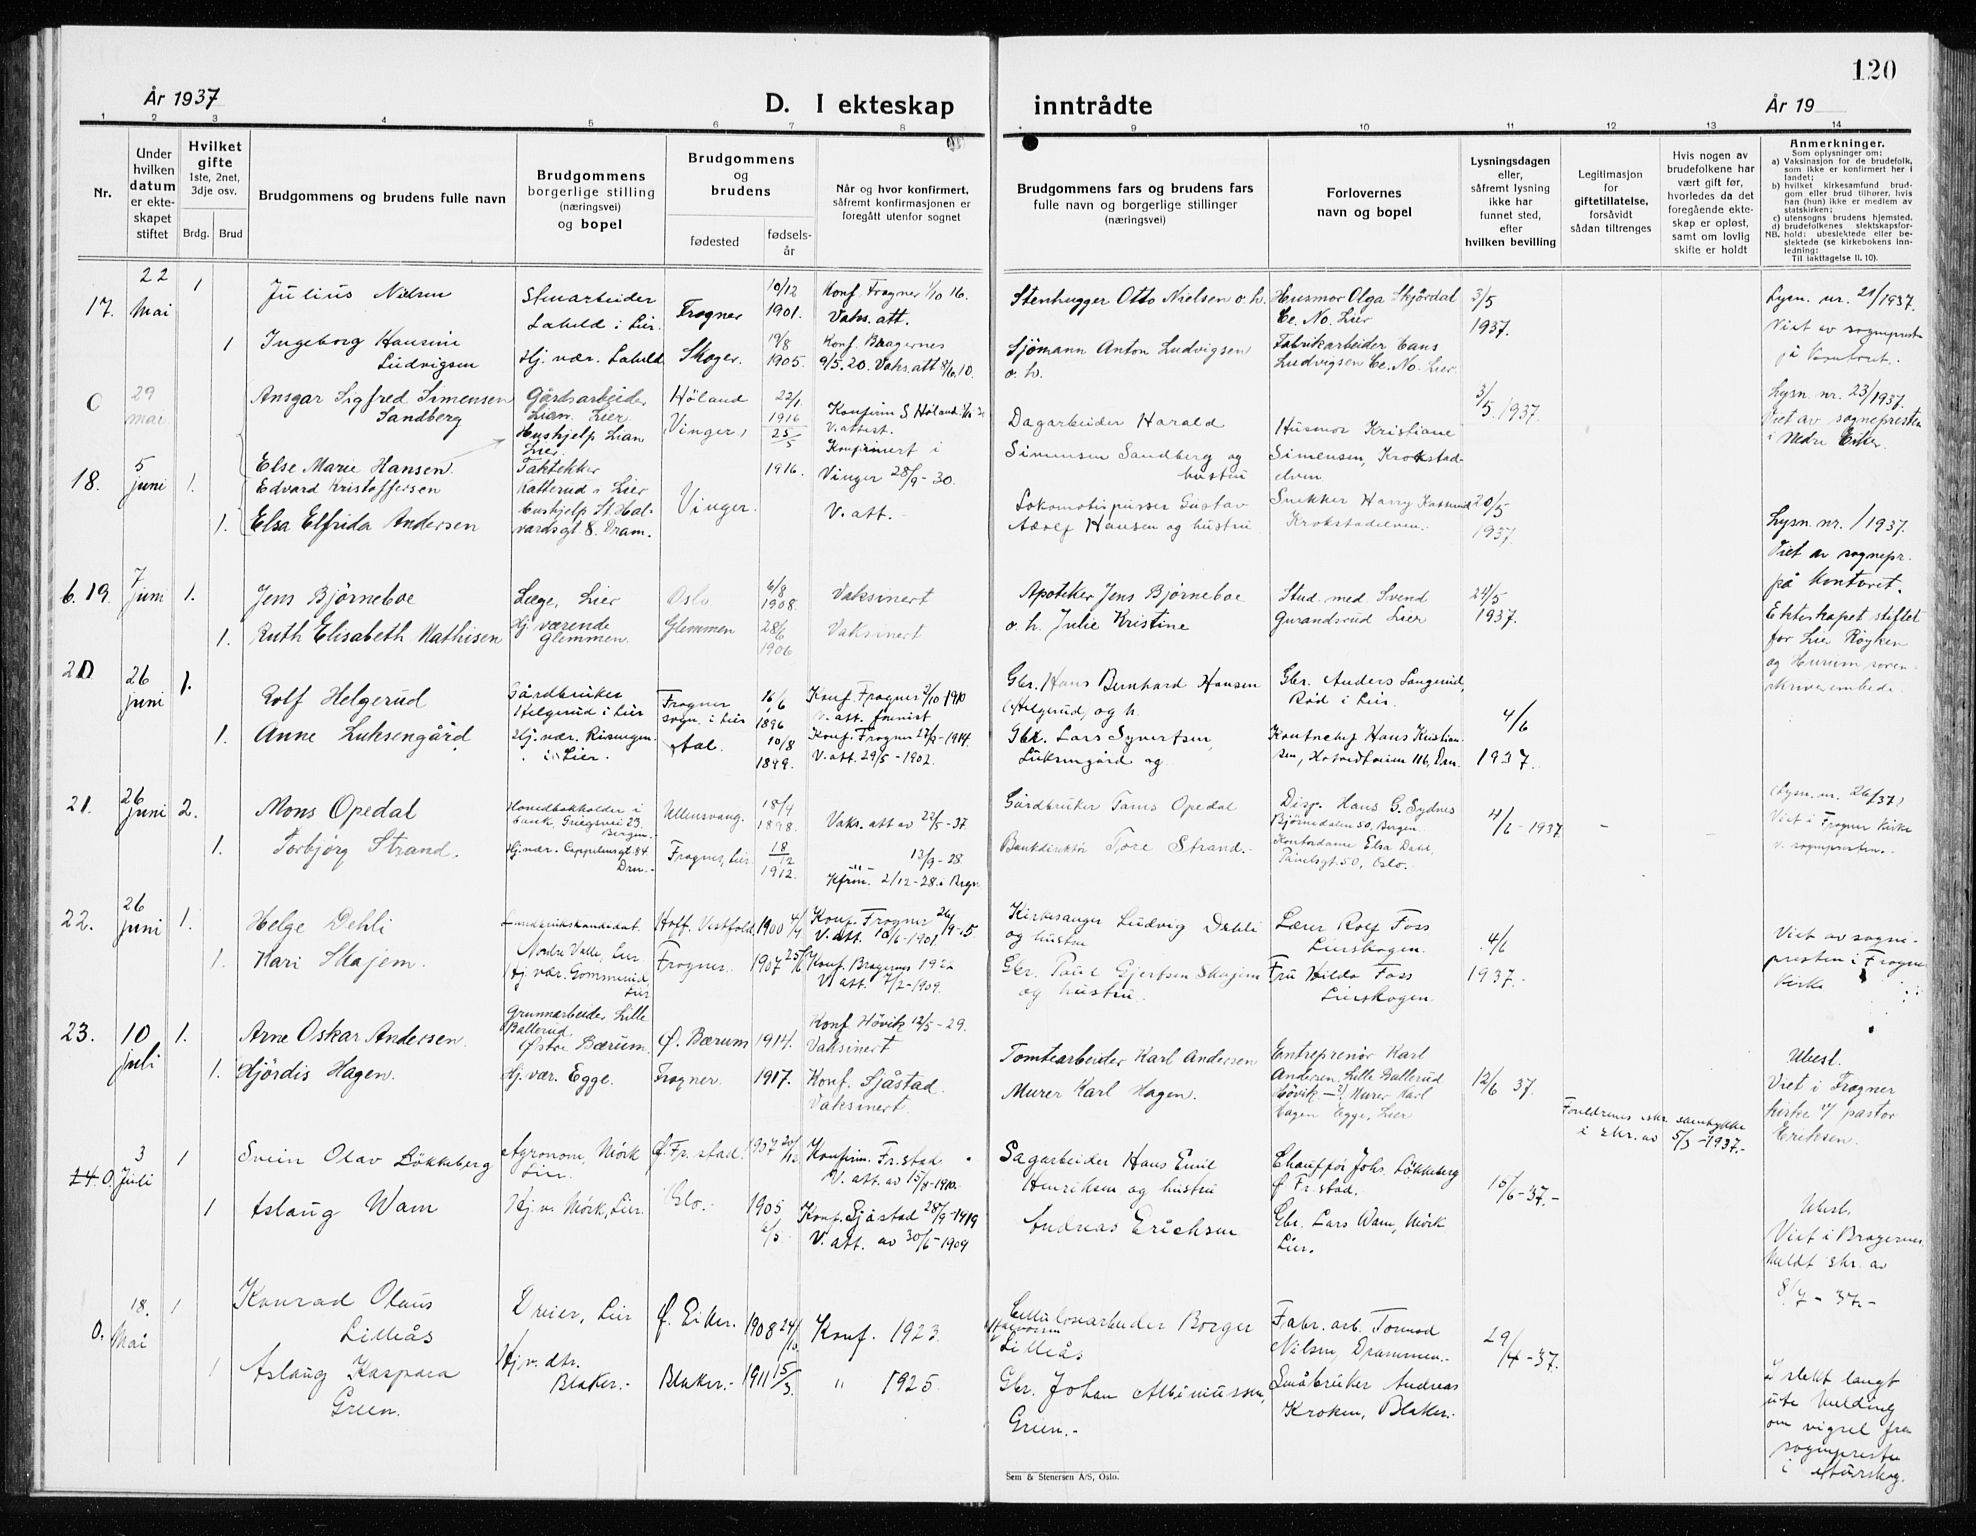 120
År 1937
D. I ekteskap inntrådte
År 19
1 2 3 4 5 6 7 8 9 10 11 12 13 14
Nr.
Under hvilken datum er ekteskapet stiftet
Hvilket gifte 1ste, 2net, 3dje osv.
Brdg. Brud
Brudgommens og brudens fulle navn
Brudgommens borgerlige stilling (næringsvei) og bopel
Brudgommens og brudens
fødested
fødselsår
Når og hvor konfirmert, såfremt konfirmasjonen er foregått utenfor sognet
Brudgommens fars og brudens fars fulle navn og borgerlige stillinger (næringsvei)
Forlovernes navn og bopel
Lysningsdagen eller, såfremt lysning ikke har funnet sted, efter hvilken bevilling
Legitimasjon for giftetillatelse, forsåvidt sådan tiltrenges
Hvis nogen av brudefolkene har vært gift før, hvorledes da det foregående ekteskap er opløst, samt om lovlig skifte er holdt
Anmerkninger.
Som oplysninger om:
a) Vaksinasjon for de brudefolk, som ikke er konfirmert her i landet;
b) hvilket kirkesamfund brudgom eller brud tilhører, hvis han (hun) ikke er medlem av statskirken;
c) utensogns brudens hjemsted.
d) brudefolkenes slektskapsforhold: ubeslektede eller beslektede (se kirkebokens innledning:
NB. Til iakttagelse II. 10).
17. 22 Mai 1 Julius Nielsen Stenarbeider Frogner 10/12 1901. Konf. Frogner 1/10 16. Vaks. att. Stenhugger Otto Nielsen o. h. Husmor Olga Skjørdal Ce. No. Lier 3/5 1937. Lysn. nr. 21/1937.
1 Ingeborg Hansine Ludvigsen Hj. vær. Skoger. 19/8 1905. Konf. Bragernes 9/5. 20. Vaks. att Sjømann Anton Ludvigsen o. h. Fabrikarbeider Hans Ludvigsen Ce. No. Lier Viet av sogneprest
0 29 mai Ansgar Sigfred Simensen Sandberg Gårdsarbeider Lian, Lier Høland 22/1 1916 Konfirm S Høland V. attest. Dagarbeider Harald Simensen Sandberg og hustru Husmor Kristiane Simensen, Krokstadelven. 3/5 1937. Lysn. nr. 23/1937. Viet av sognepresten i Nedre Eiker.
Else Marie Hansen. Hushjelp Lian Lier. Vinger 25/5 1916. Konfirmert i Vinger 28/9-30. V. att. Lokomotivpusser Gustav Adolf Hansen og hustru Snekker Harry Krokstadelven.
18. 5 juni 1. Edvard Kristoffersen Taktekker Katterud i Lier Vinger. 20/5 1937. Lysn. nr. /1937. Viet av sognepr. på kontoret.
1. Elsa Elfrida Andersen Hushjelp St. Halvardsgt 8. Dram.
6. 19. 7 juni 1. Jens Bjørneboe Læge, Lier Oslo 6/8 1908. Vaksinert Apoteker Jens Bjørneboe o. h. Julie Kristine Stud. med. Svend Gurandsrud Lier 24/5 1937. Ekteskapet stiftet for Lier Røyken og Hurum sorenskriverembede.
1. Ruth Elisabeth Mathisen Hj. værende Glemmen. Glemmen 28/6 1906 Vaksinert
20 26 juni 1. Rolf Helgerud Gårdbruker Helgerud i Lier Frogner sogn. i Lier 16/6 1896 Konf. Frogner 2/10-1910 V. att. Gbr. Hans Bernhard Hansen Helgerud, og h. Gbr. Anders Langerud, Rød i Lier. 4/6 1937.
1. Anne Luksengård Hj. vær. Risingen i Lier. Aal. 10/8 1899. Konf. Frogner 27/9-1914. V. att. 29/5-1902. Gbr. Lars Syvertsen Luksengård og Hans Kristiansen, 116, Drn. (Lysn. nr. 26/37)
21. 26 juni 2. Mons Opedal Hovedbokholder i bank, Griegsvei 23. Bergen. Ullensvang. 18/4 1898. Vaks. att av 22/5-37 Gårdbruker Tams Opedal Disp. Hans G. Sydnes Bjørnedalen 50, Bergen. 4/6-1937 - - Viet i Frogner Kirke v. sognepresten.-
1. Torbjørg Strand. Hj. vær. Cappelensgt. 84 Drn.- Frogner, Lier 18/12 1912. 12/9-28 Kfrm. 2/12-28 i Brgn. Bankdirektør Tore Strand.- Kontordame Elsa Dahl, Oslo.-
22. 26 juni 1. Helge Dehli Landbrukskandidat. Nordre Valle, Lier Hoff. Vestfold 1900 4/4 Konf. Frogner 26/9-15 V. att. 10/6-1901. Kirkesanger Ludvig Dehli og hustru Lærer Rolf Foss Lierskogen. 4/6 1937. Viet av sognepresten i Frogner Kirke
1. Kari Skajem. Hj. vær. Gommerud, Lier Frogner. 1907 Konf. Bragernes 1922 V. att. 7/2-1909. Gbr. Paul Gjertsen Skajem og hustru. Fru Hilda Foss Lierskogen.
23. 10 juli 1. Arne Oskar Andersen. Grunnarbeider Lille Ballerud Østre Bærum. Ø. Bærum 1914. Konf Høvik 12/5-29. Vaksinert Tomtearbeider Karl Andersen Entreprenør Karl Andersen, Lille Ballerud Høvik 12/6 37. Ubesl. Viet i Frogner kirke v/ pastor Eriksen.
1. Hjördis Hagen. Hj. vær. Egge. Frogner. 1917. Konf. Sjåstad. Vaksinert. Murer Karl Hagen. Murer Karl Hagen Egge, Lier Foreldrenes skr. samtykke i skr. av 5/3-1937.-
24. 0. 3 Juli 1 Svein Olav Løkkeberg Agronom, Mörk Lier. Ø. Fr. stad. 1907 Konfirm. Fr.stad. V. att. av 15/8-1910. Sagarbeider Hans Emil Henriksen og hustru Chauffør Johs. Løkkeberg Ø Fr. stad. 15/6-37.- Ubesl. Viet i Bragernes. Meldt skr. av 8/7-37.-
1 Aslaug Wam Hj. v. Mörk, Lier. Oslo.- 1905 6/5. Konf. Sjåstad 28/9-1919 V. att. av 30/6-1909 Andreas Erichsen Gbr. Lars Wam, Mörk Lier.
0. 18. Mai 1 Konrad Olaus Lilleås Dreier, Lier Ø. Eiker. 1908 24/10 Konf. 1923. Cellulosearbeider Borger Halvorsen Lilleås Fabr. arb. Tormod Nilsen, Drammen.- 29/4-37. i slekt langt ute Melding om vigsel fra sognepresten i
1 Aslaug Kaspara Green. Hj. v. dtr. Blaker.- Blaker.- 1911 15/3. " 1925. Gbr. Johan Albinussen, Green.- Småbruker Andreas Kroken, Blaker.-
Sem & Stenersen A/S, Oslo.